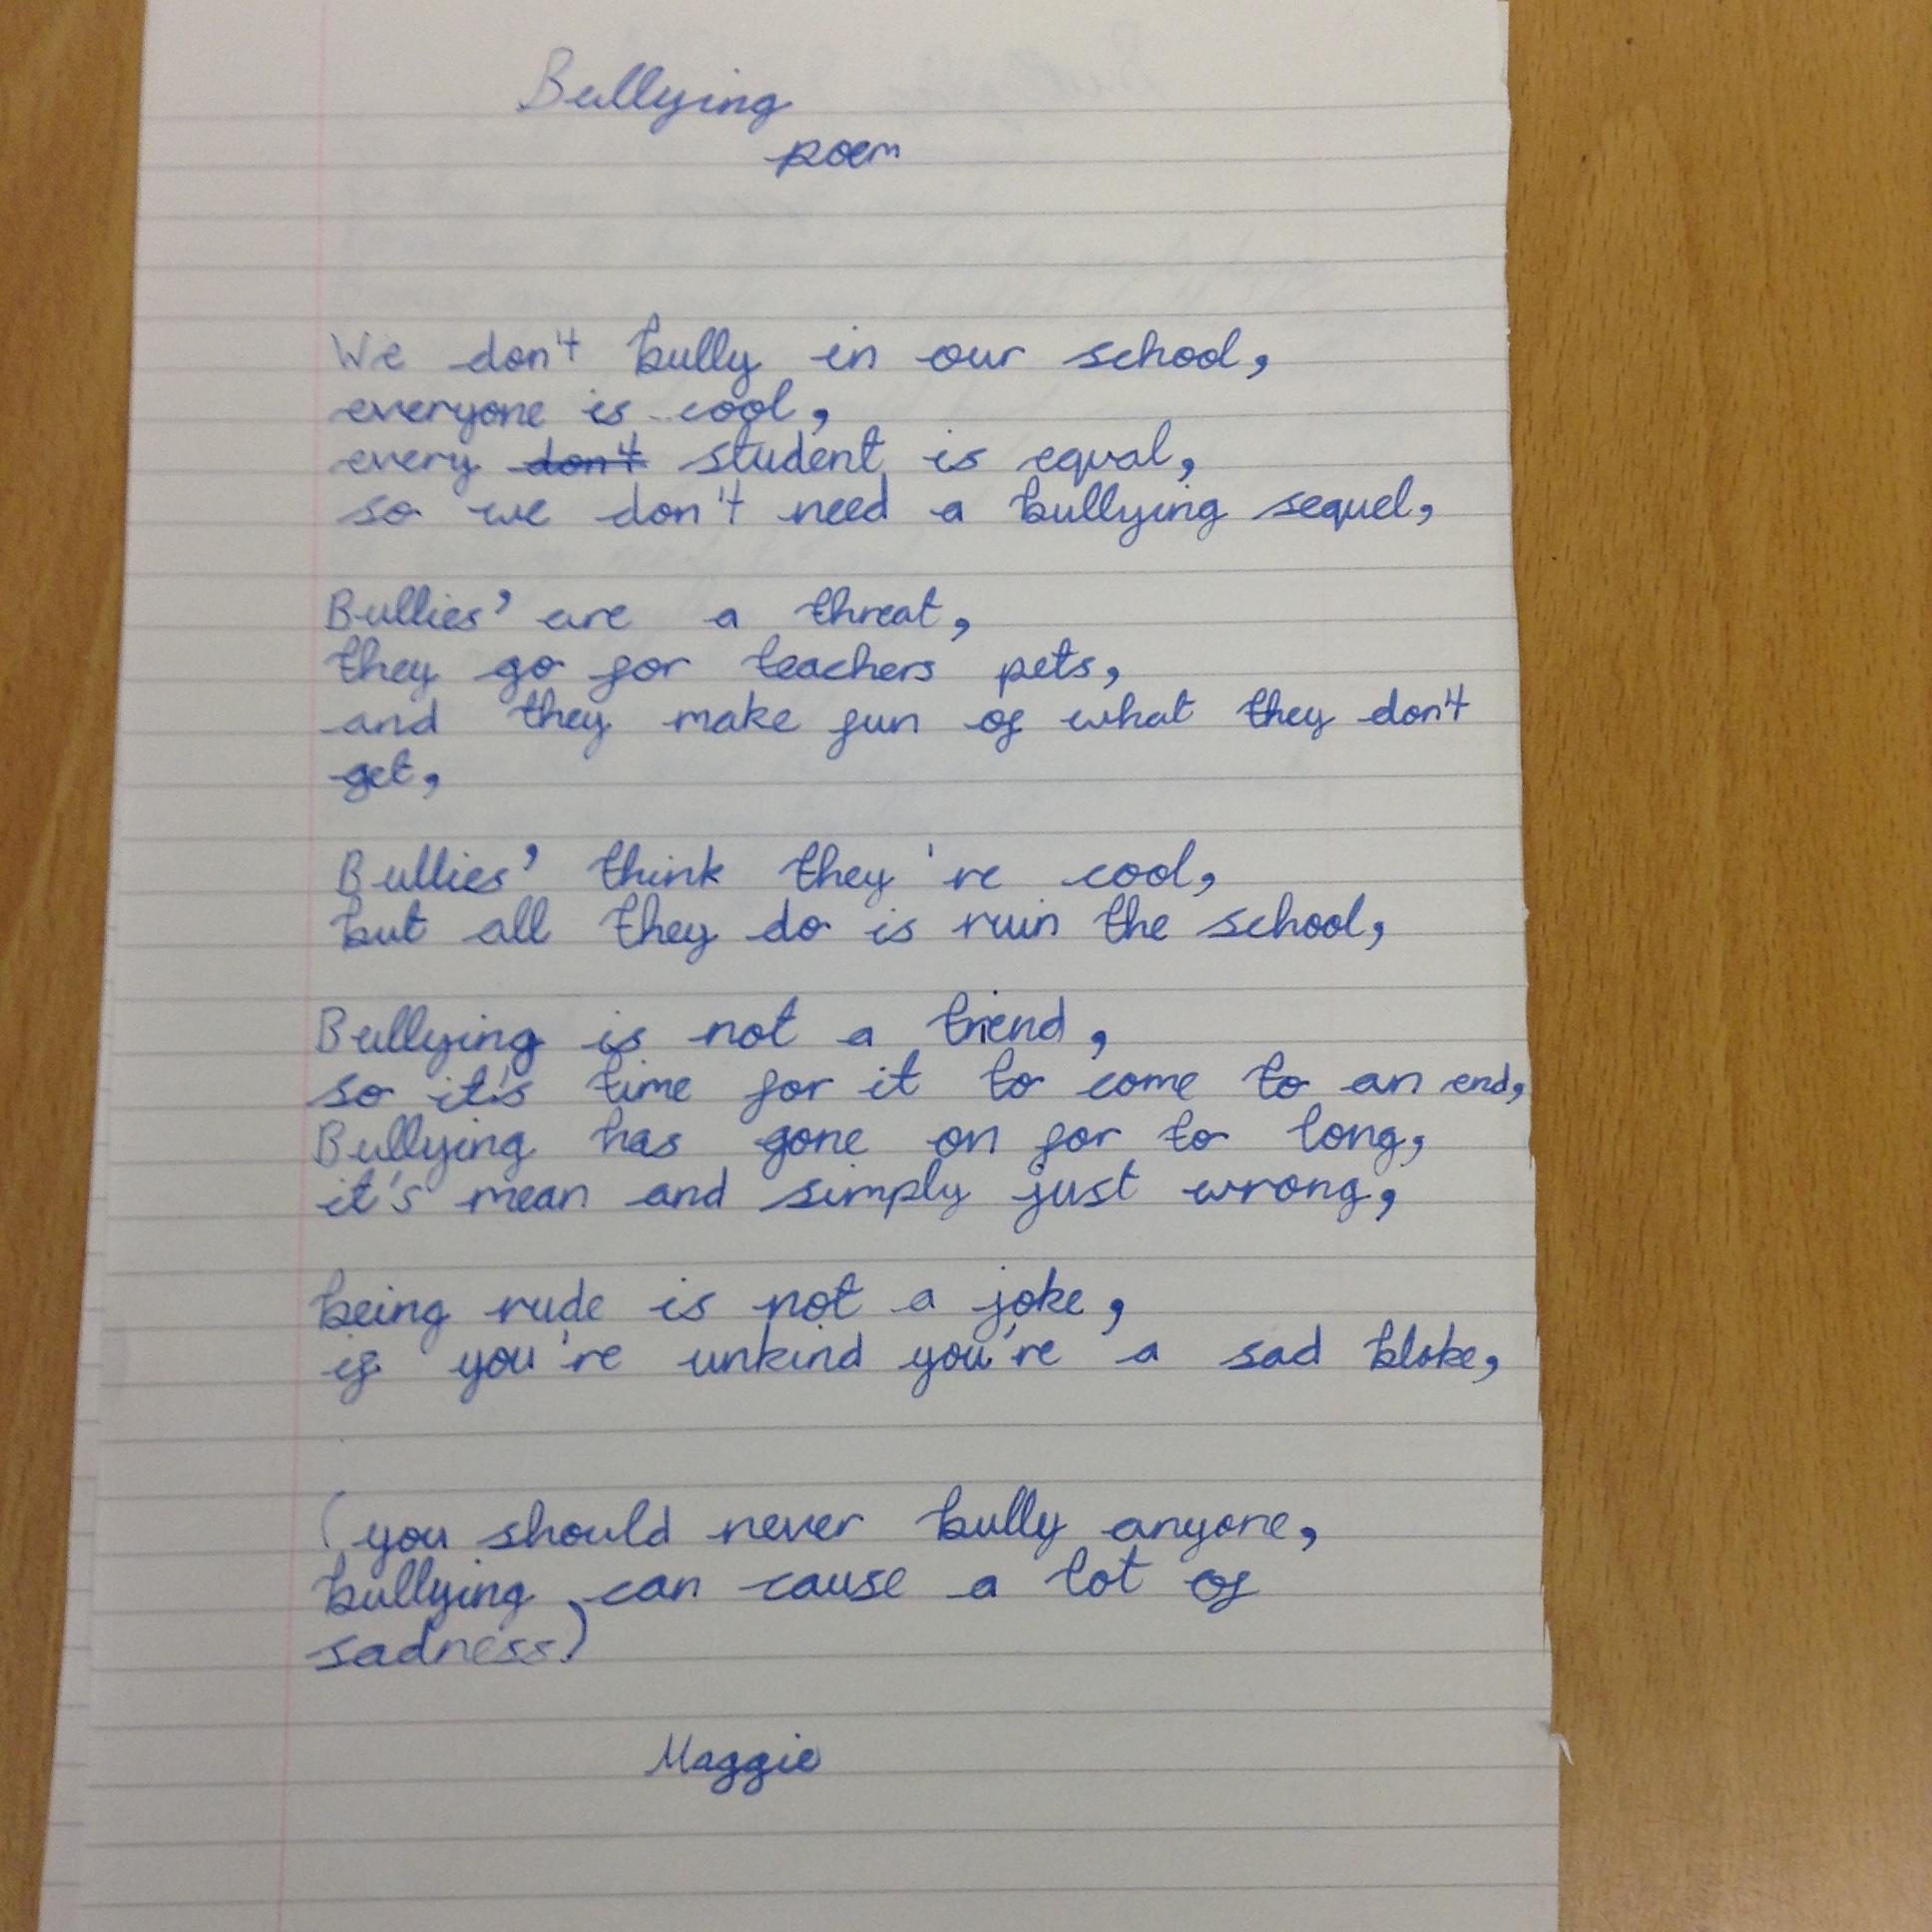 Bullying
poem
We don't bully in our school,
everyone is cool,
every don't student is equal,
so we don't need a bullying sequel,
Bullies' are a threat,
they go for teachers pets,
and they make fun of what they don't
get,
Bullies' think they're cool,
but all they do is ruin the school,
Bullying is not a triend,
so it's time for it to come to an end,
Bullying has gone on for to long,
it's mean and simply just wrong,
being rude is not a joke,
if you're unkind you're a sad bloke,
(you should never bully anyone,
bullying can cause a lot of
sadness)
Maggie